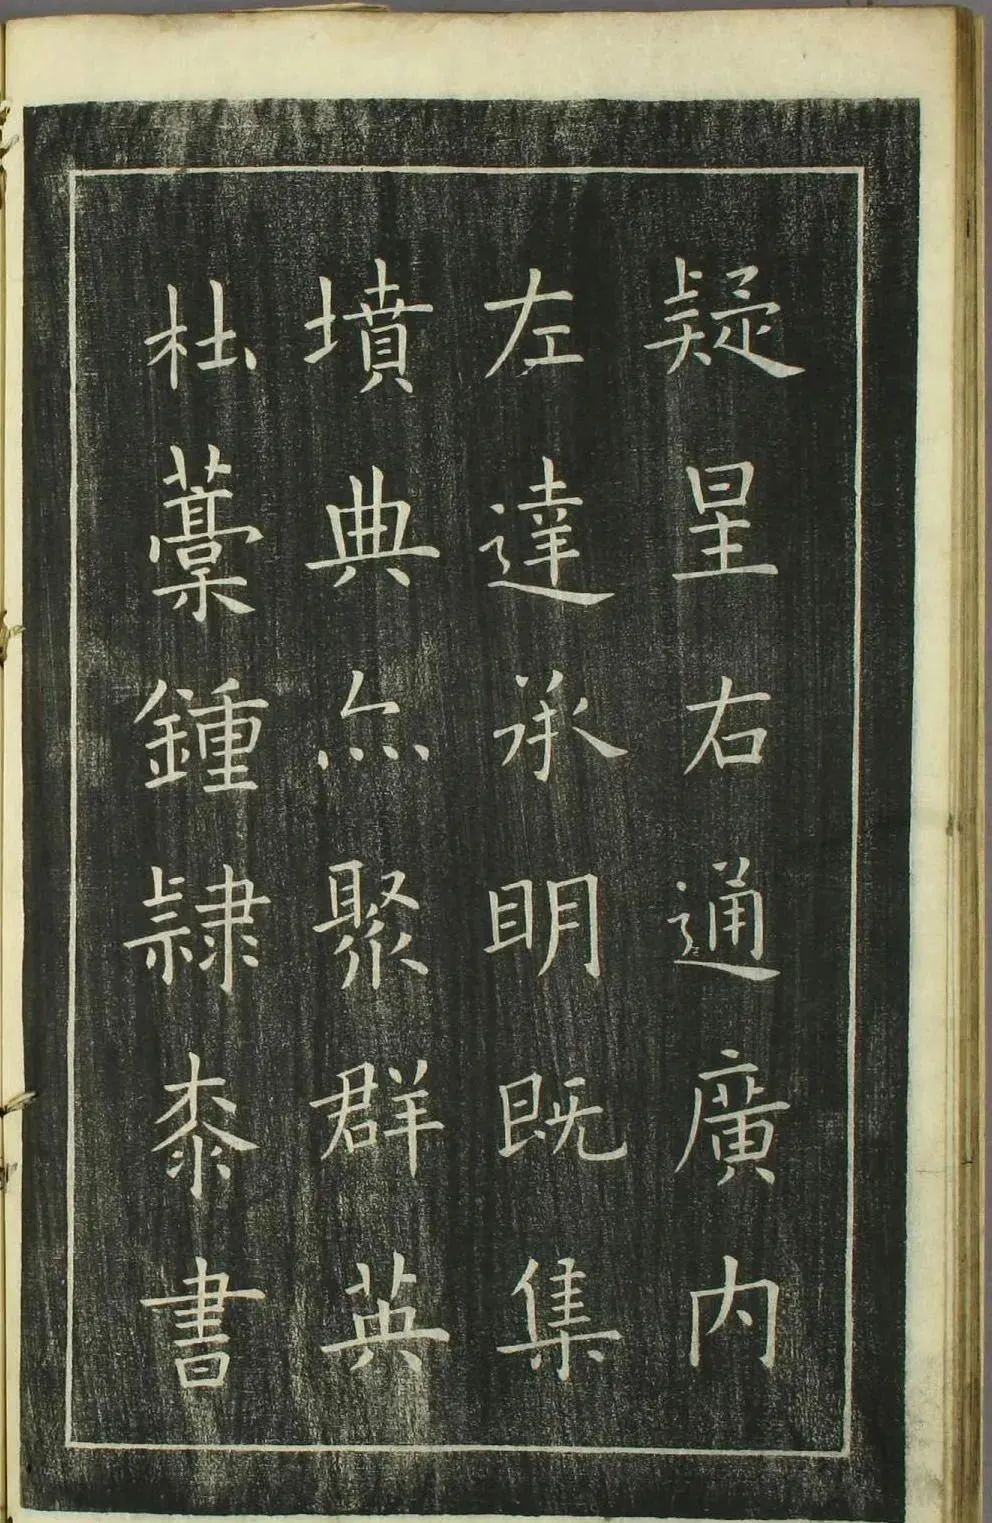 疑星右通廣内
左達承眀既集
墳典亦聚群英
杜藁鍾隸桼書